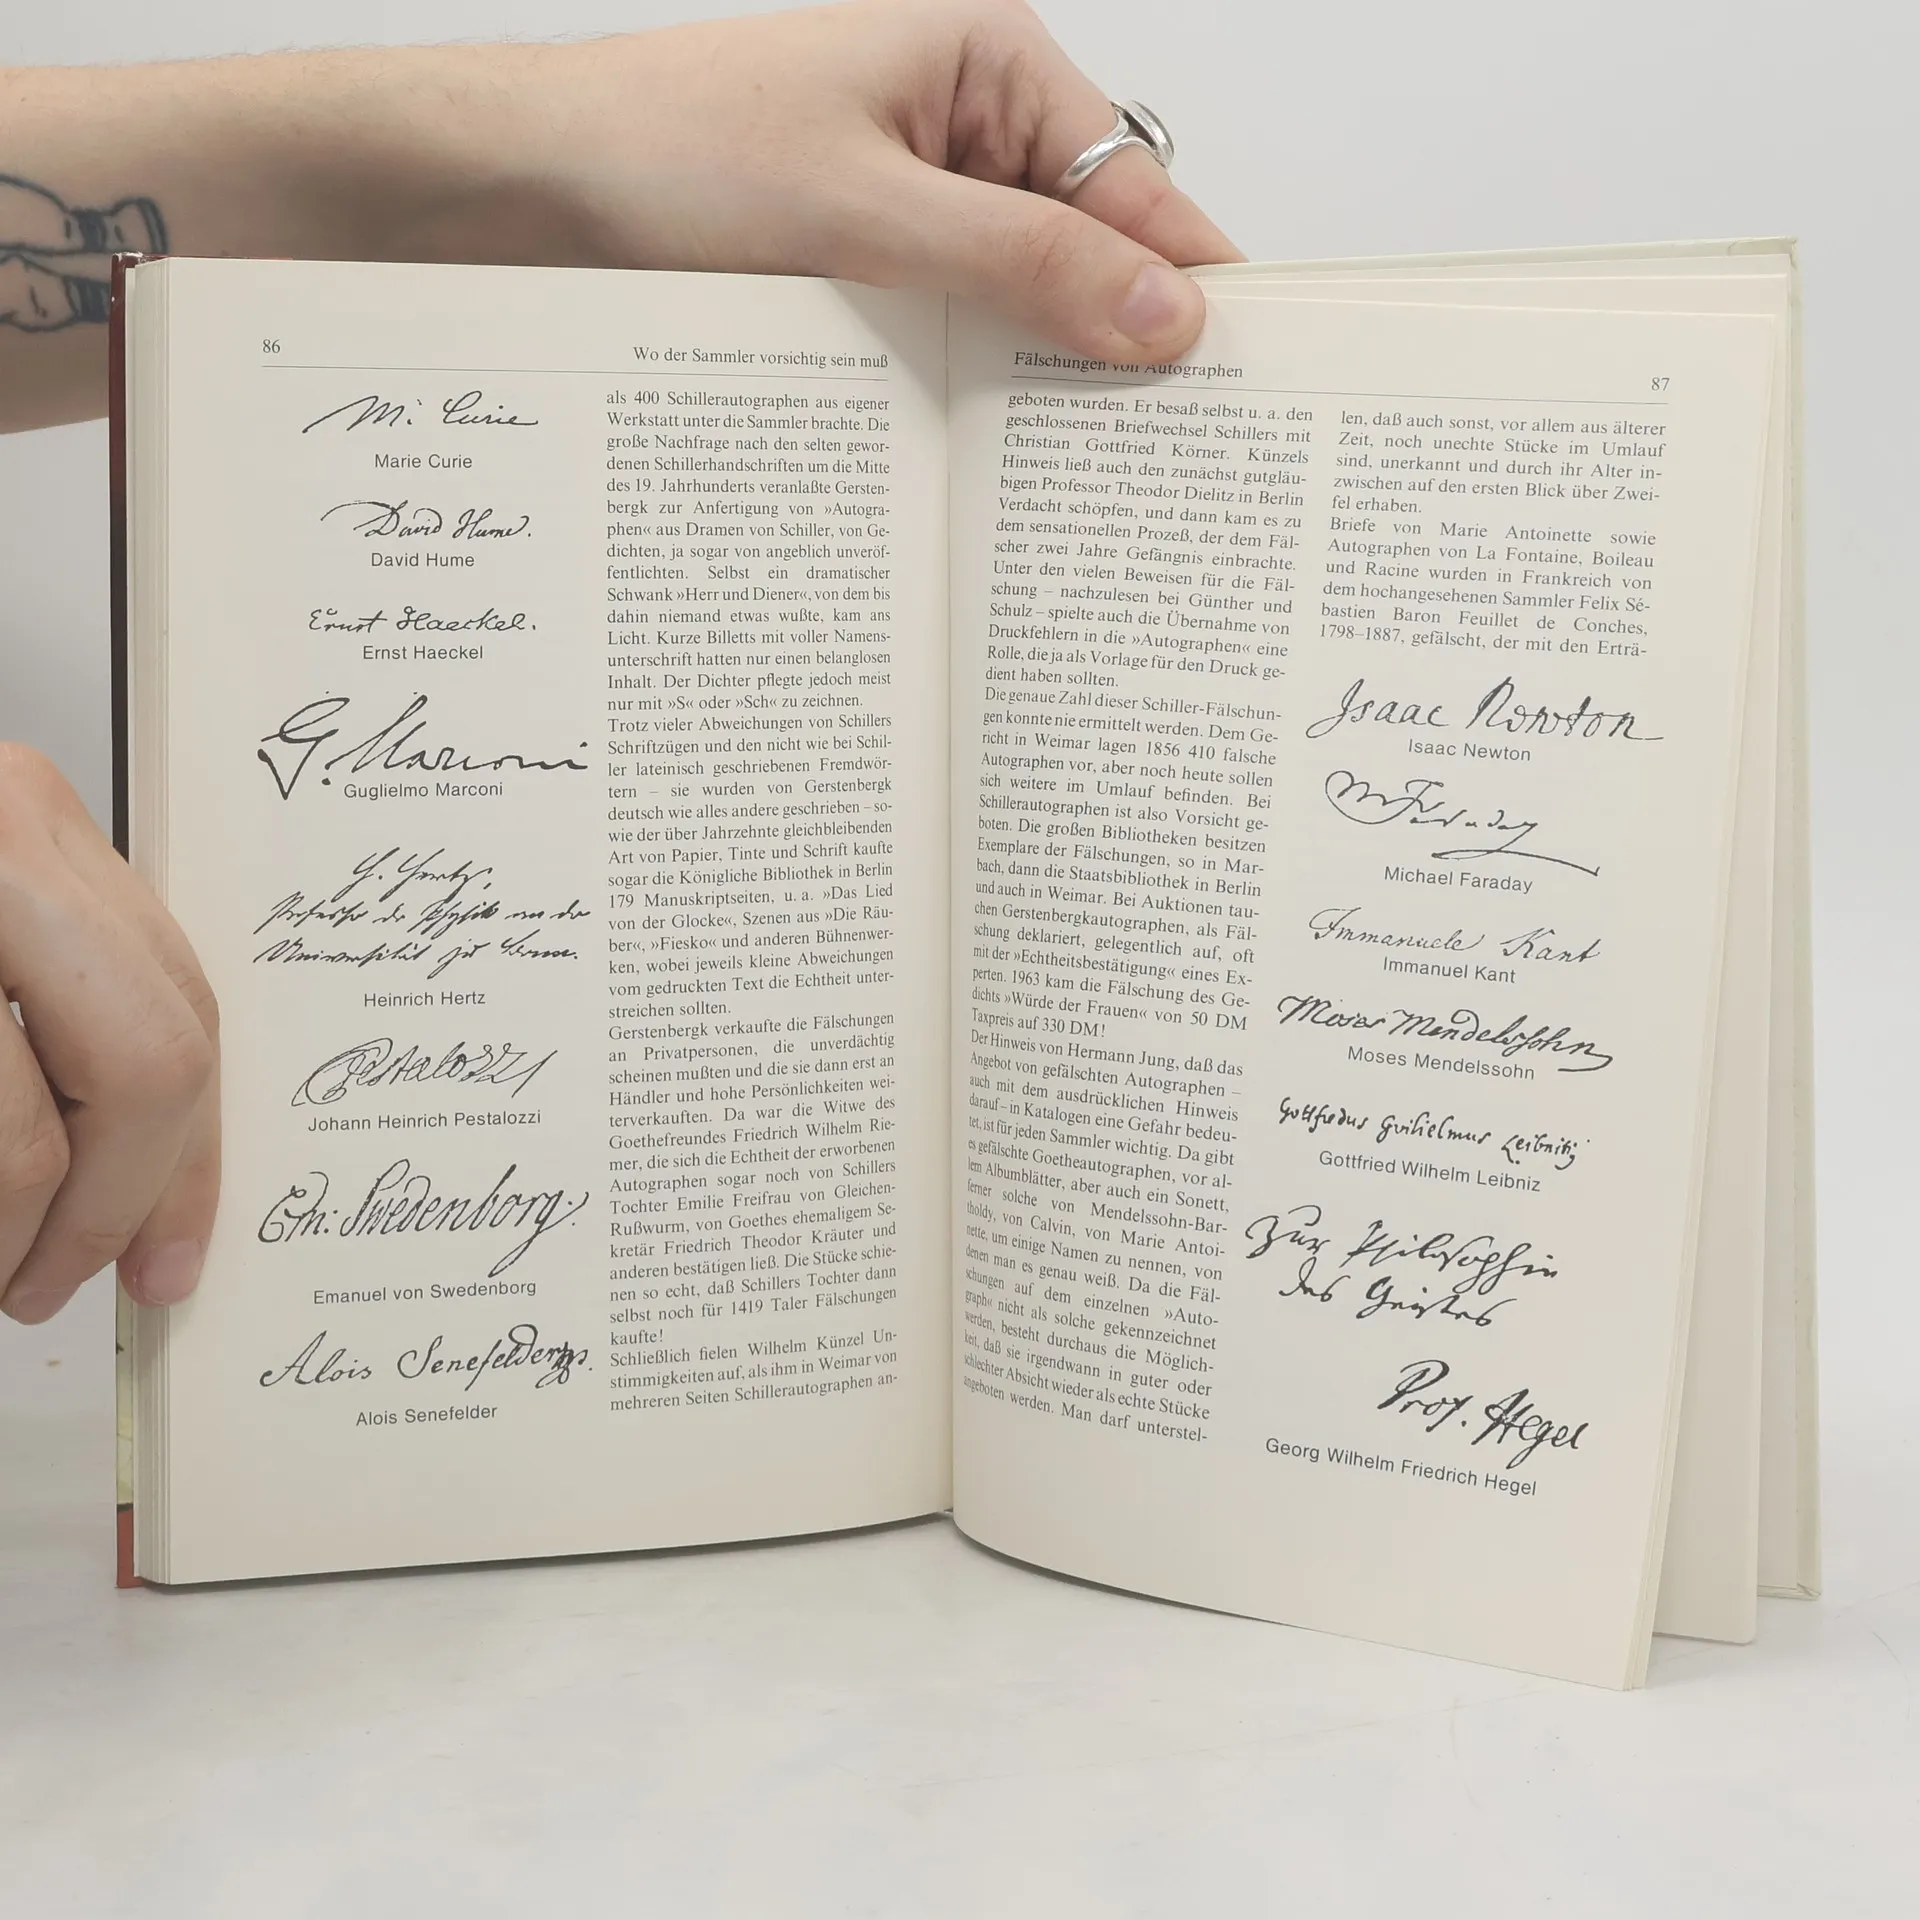 86
Wo der Sammler vorsichtig sein muß
M. Curie
Marie Curie
David Hume.
David Hume
Ernst Haeckel.
Ernst Haeckel
G. Marconi
Guglielmo Marconi
H. Hertz,
Professor der Physik an der
Universität zu Bonn.
Heinrich Hertz
Pestalozzi
Johann Heinrich Pestalozzi
Em: Swedenborg
Emanuel von Swedenborg
Alois Senefelder
Alois Senefelder
als 400 Schillerautographen aus eigener
Werkstatt unter die Sammler brachte. Die
große Nachfrage nach den selten gewor-
denen Schillerhandschriften um die Mitte
des 19. Jahrhunderts veranlaßte Gersten-
bergk zur Anfertigung von »Autogra-
phen« aus Dramen von Schiller, von Ge-
dichten, ja sogar von angeblich unveröf-
fentlichten. Selbst ein dramatischer
Schwank »Herr und Diener«, von dem bis
dahin niemand etwas wußte, kam ans
Licht. Kurze Billetts mit voller Namens-
unterschrift hatten nur einen belanglosen
Inhalt. Der Dichter pflegte jedoch meist
nur mit »S« oder »Sch« zu zeichnen.
Trotz vieler Abweichungen von Schillers
Schriftzügen und den nicht wie bei Schil-
ler lateinisch geschriebenen Fremdwör-
tern – sie wurden von Gerstenbergk
deutsch wie alles andere geschrieben – so-
wie der über Jahrzehnte gleichbleibenden
Art von Papier, Tinte und Schrift kaufte
sogar die Königliche Bibliothek in Berlin
179 Manuskriptseiten, u. a. »Das Lied
von der Glocke«, Szenen aus »Die Räu-
ber«, »Fiesko« und anderen Bühnenwer-
ken, wobei jeweils kleine Abweichungen
vom gedruckten Text die Echtheit unter-
streichen sollten.
Gerstenbergk verkaufte die Fälschungen
an Privatpersonen, die unverdächtig
scheinen mußten und die sie dann erst an
Händler und hohe Persönlichkeiten wei-
terverkauften. Da war die Witwe des
Goethefreundes Friedrich Wilhelm Rie-
mer, die sich die Echtheit der erworbenen
Autographen sogar noch von Schillers
Tochter Emilie Freifrau von Gleichen-
Rußwurm, von Goethes ehemaligem Se-
kretär Friedrich Theodor Kräuter und
anderen bestätigen ließ. Die Stücke schie-
nen so echt, daß Schillers Tochter dann
selbst noch für 1419 Taler Fälschungen
kaufte!
Schließlich fielen Wilhelm Künzel Un-
stimmigkeiten auf, als ihm in Weimar von
mehreren Seiten Schillerautographen an-
Fälschungen von Autographen
87
geboten wurden. Er besaß selbst u. a. den
geschlossenen Briefwechsel Schillers mit
Christian Gottfried Körner. Künzels
Hinweis ließ auch den zunächst gutgläu-
bigen Professor Theodor Dielitz in Berlin
Verdacht schöpfen, und dann kam es zu
dem sensationellen Prozeß, der dem Fäl-
scher zwei Jahre Gefängnis einbrachte.
Unter den vielen Beweisen für die Fäl-
schung – nachzulesen bei Günther und
Schulz – spielte auch die Übernahme von
Druckfehlern in die »Autographen« eine
Rolle, die ja als Vorlage für den Druck ge-
dient haben sollten.
Die genaue Zahl dieser Schiller-Fälschun-
gen konnte nie ermittelt werden. Dem Ge-
richt in Weimar lagen 1856 410 falsche
Autographen vor, aber noch heute sollen
sich weitere im Umlauf befinden. Bei
Schillerautographen ist also Vorsicht ge-
boten. Die großen Bibliotheken besitzen
Exemplare der Fälschungen, so in Mar-
bach, dann die Staatsbibliothek in Berlin
und auch in Weimar. Bei Auktionen tau-
chen Gerstenbergkautographen, als Fäl-
schung deklariert, gelegentlich auf, oft
mit der »Echtheitsbestätigung« eines Ex-
perten. 1963 kam die Fälschung des Ge-
dichts »Würde der Frauen« von 50 DM
Taxpreis auf 330 DM!
Der Hinweis von Hermann Jung, daß das
Angebot von gefälschten Autographen –
auch mit dem ausdrücklichen Hinweis
darauf – in Katalogen eine Gefahr bedeu-
tet, ist für jeden Sammler wichtig. Da gibt
es gefälschte Goetheautographen, vor al-
lem Albumblätter, aber auch ein Sonett,
ferner solche von Mendelssohn-Bar-
tholdy, von Calvin, von Marie Antoi-
nette, um einige Namen zu nennen, von
denen man es genau weiß. Da die Fäl-
schungen auf dem einzelnen »Auto-
graph« nicht als solche gekennzeichnet
werden, besteht durchaus die Möglich-
keit, daß sie irgendwann in guter oder
schlechter Absicht wieder als echte Stücke
angeboten werden. Man darf unterstel-
len, daß auch sonst, vor allem aus älterer
Zeit, noch unechte Stücke im Umlauf
sind, unerkannt und durch ihr Alter in-
zwischen auf den ersten Blick über Zwei-
fel erhaben.
Briefe von Marie Antoinette sowie
Autographen von La Fontaine, Boileau
und Racine wurden in Frankreich von
dem hochangesehenen Sammler Felix Sé-
bastien Baron Feuillet de Conches,
1798–1887, gefälscht, der mit den Erträ-
Isaac Newton
Isaac Newton
M Faraday
Michael Faraday
Immanuel Kant
Immanuel Kant
Moses Mendelssohn
Moses Mendelssohn
Gottfredus Guilielmus Leibnitz
Gottfried Wilhelm Leibniz
Zur Philosophie
des Geistes
Prof. Hegel
Georg Wilhelm Friedrich Hegel